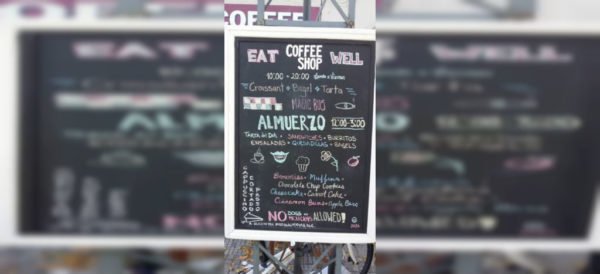 COFFEE
EAT COFFEE SHOP WELL
10:00 - 20:00
Croissant + Bagel + Tarta
MAGIC BUS
ALMUERZO 12:00-3:00
TARTA del DIA + SANDWICHES + BURRITOS
ENSALADAS + QUESADILLAS + BAGELS
Brownies + Muffins
Chocolate Chip Cookies
Cheesecake + Carrot Cake
Cinnamon Buns + Apple
CAPPUCCINO
CORTADO
NO DOGS or MEXICANS ALLOWED!